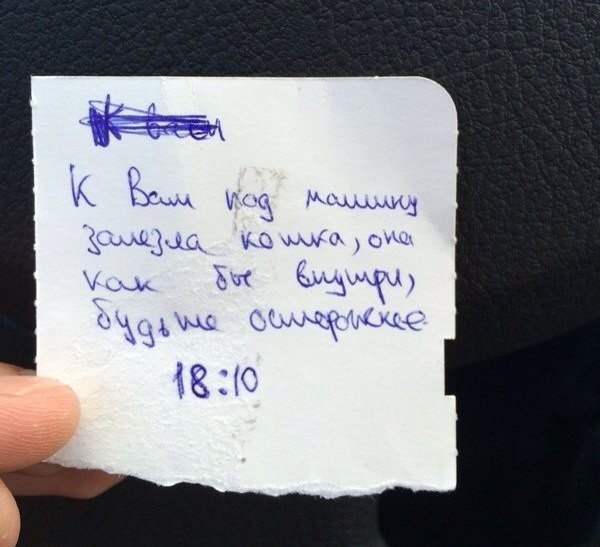 К вам
К Вам под машину
залезла кошка, она
как бы внутри,
будьте осторожнее
18:10